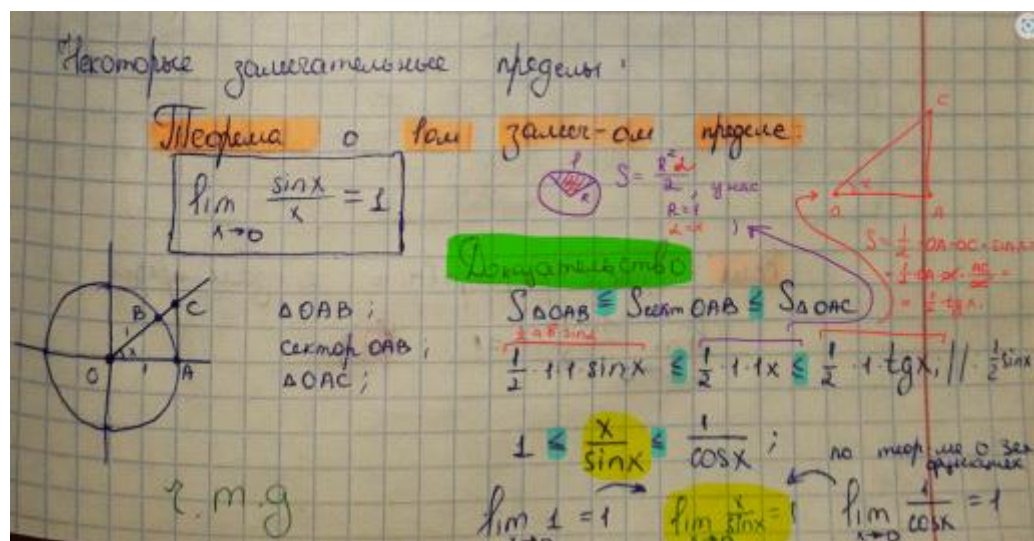 Некоторые замечательные пределы:
Теорема о 1ом замеч-ом пределе:
lim sinx/x = 1
x→0
S = R²α/2, у нас
R=1
α=x
C
O x A
S = 1/2 · OA · OC · sinx
= 1/2 · OA · OC · AC/OC =
= 1/2 tgx.
Доказательство
B C
1
O x 1 A
ΔOAB;
сектор OAB;
ΔOAC;
SΔOAB ≤ Sсект OAB ≤ SΔOAC
1/2 a·b·sinα
1/2 · 1 · 1 · sinx ≤ 1/2 · 1 · 1x ≤ 1/2 · 1 · tgx; // · 1/2 sinx
1 ≤ x/sinx ≤ 1/cosx; по теор-ме о
функциях
ч.т.д
lim 1 = 1 lim x/sinx = 1 lim 1/cosx = 1
x→0 x→0 x→0